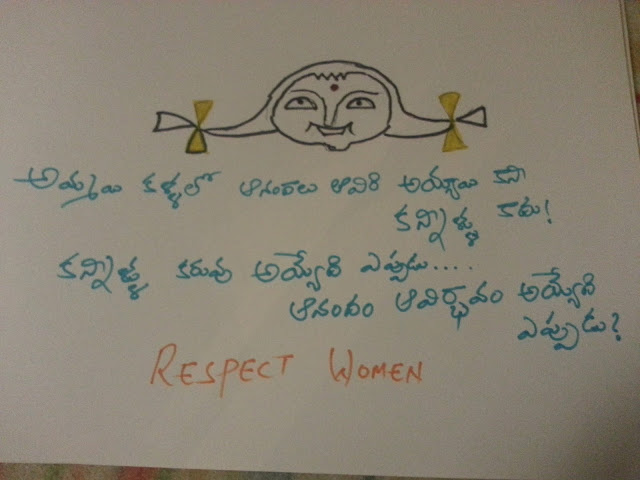 అమ్మాయి కళ్ళలో ఆనందాలు ఆవిరి అయ్యాయి కానీ
కన్నీళ్ళు కాదు!
కన్నీళ్ళ కరువు అయ్యేది ఎప్పుడు....
ఆనందం ఆవిర్భవం అయ్యేది
ఎప్పుడు?
RESPECT WOMEN